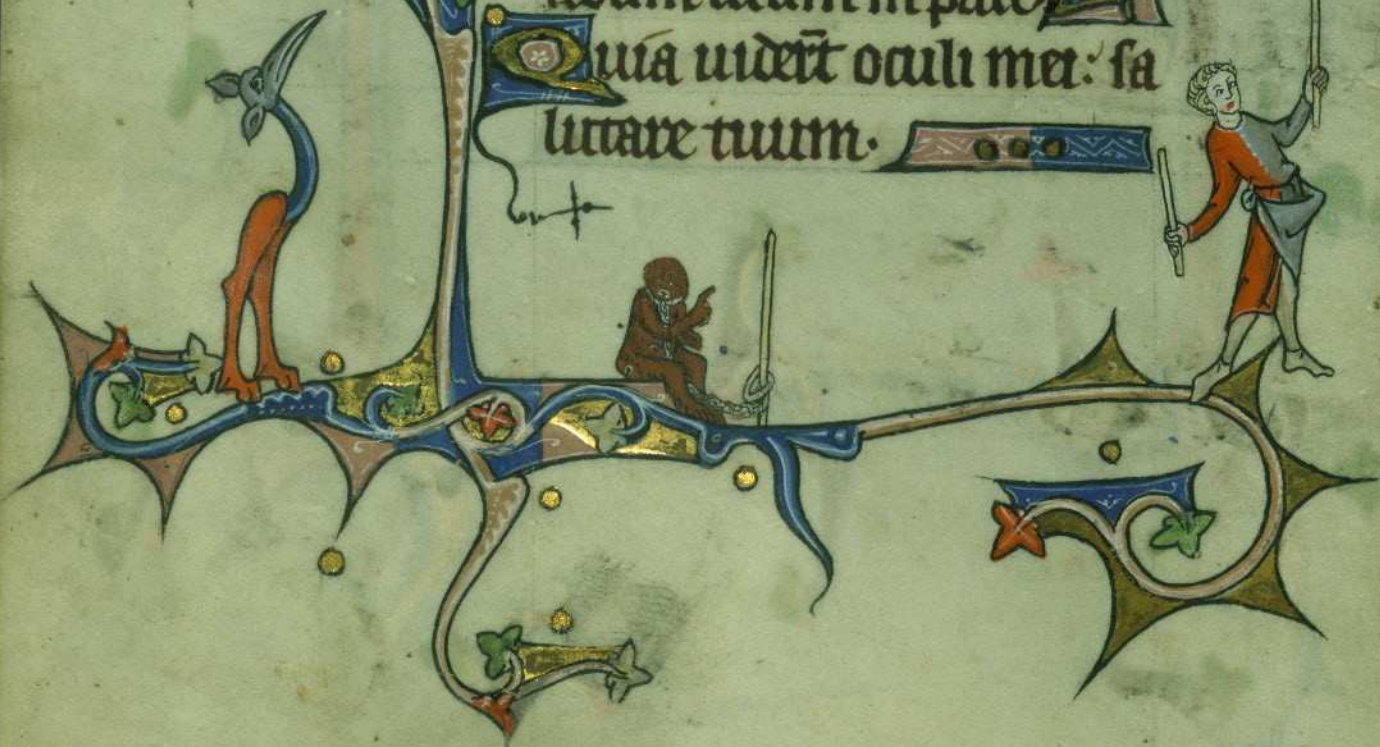 Quia uider̄t oculi mei: sa
lutare tuum.